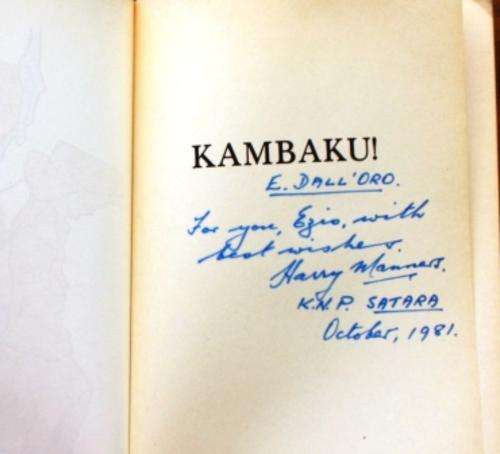 KAMBAKU!
E. DALL'ORO.
For you, Ezio, with
best wishes.
Harry Manners.
K.N.P. SATARA
October, 1981.